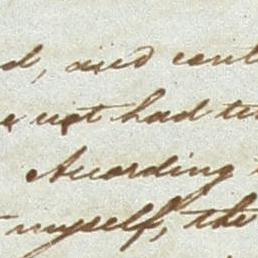 d, and cont
not had te
According
myself, the